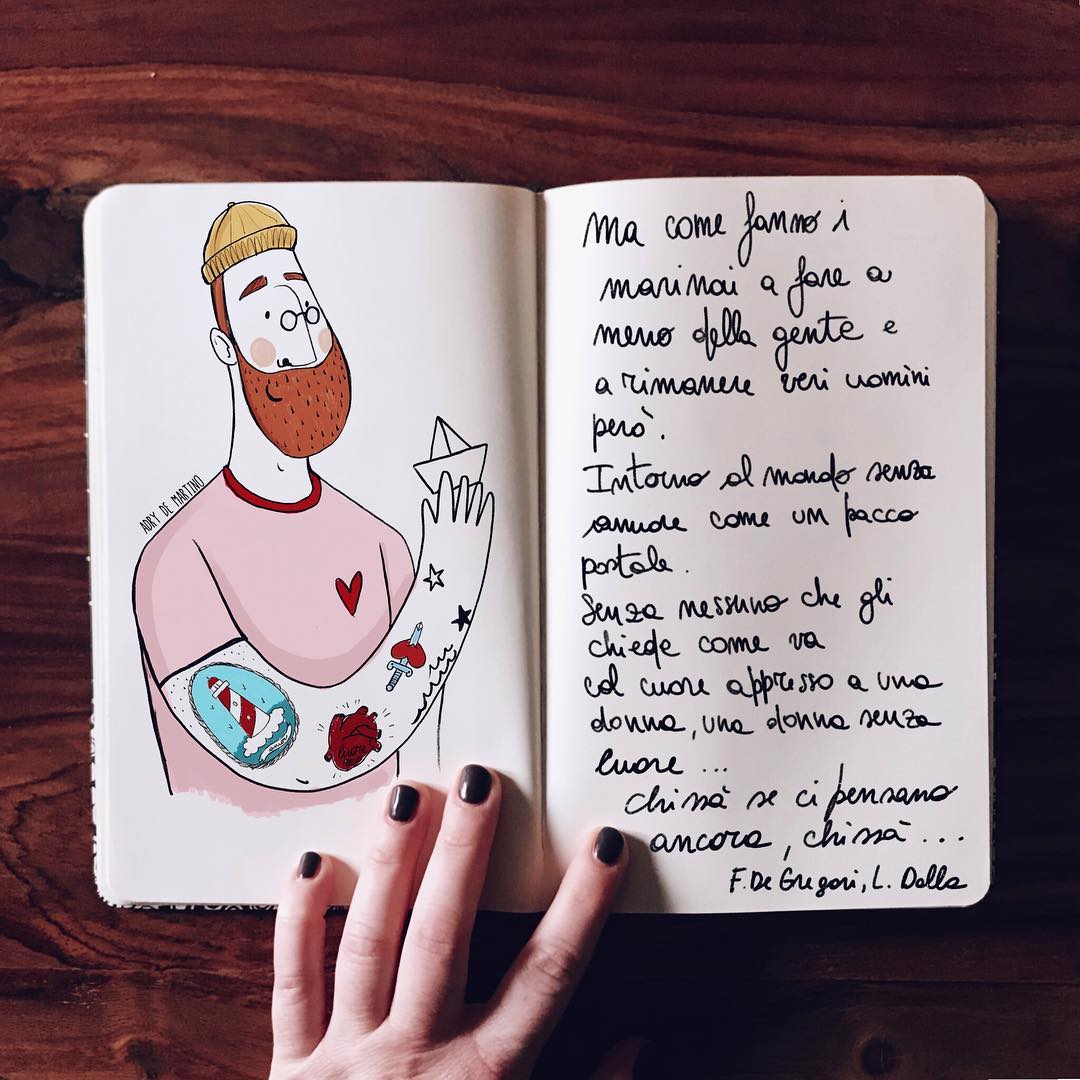 ADRY DE MARTINO
Ma come fanno i
marinai a fare a
meno della gente e
a rimanere veri uomini
però.
Intorno al mondo senza
amore come un pacco
postale.
Senza nessuno che gli
chiede come va
col cuore appresso a una
donna, una donna senza
cuore ...
chissà se ci pensano
ancora, chissà ...
F. De Gregori, L. Dalla